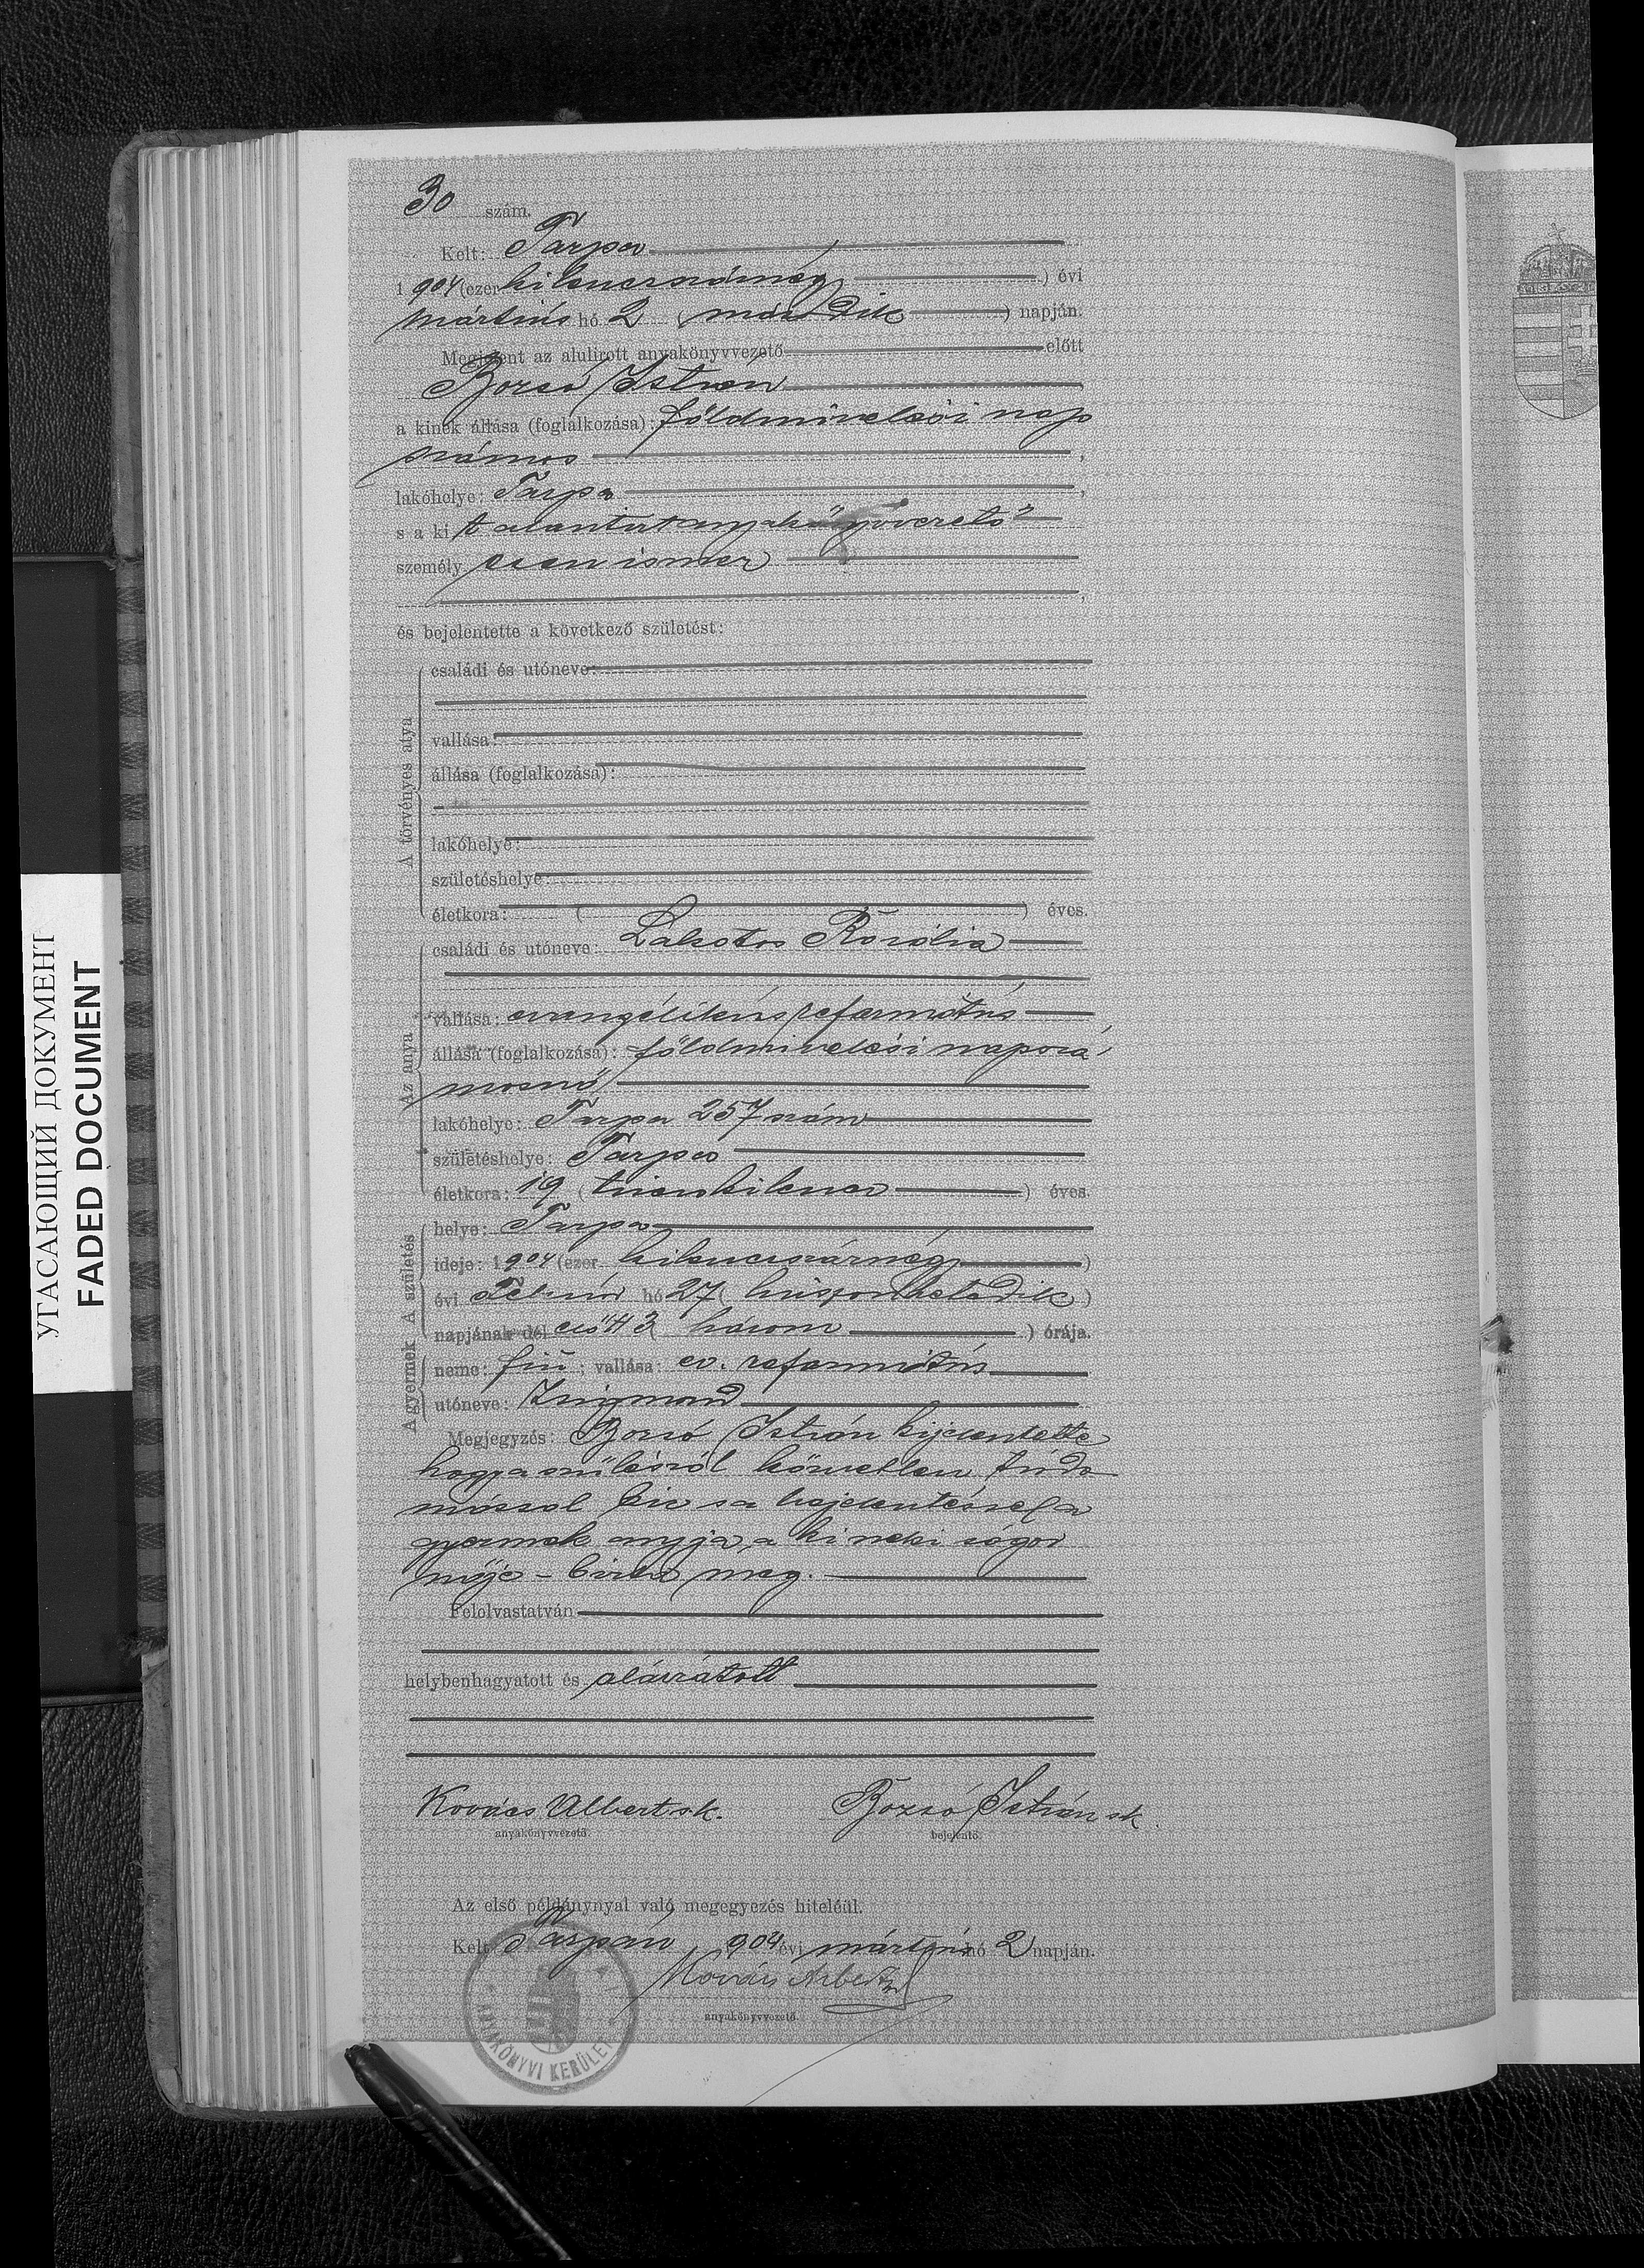 УГАСАЮЩИЙ ДОКУМЕНТ
FADED DOCUMENT
30 szám.
Kelt: Tarpa
1904 (ezer kilencszáznégy) évi
mártius hó 2 (második) napján.
Megjelent az alulirott anyakönyvvezető előtt
Bozsó István
a kinek állása (foglalkozása): földmivelési nap
számos,
lakóhelye: Tarpa,
s a kit alantirt anyakönyvvezető
személyesen ismer
és bejelentette a következő születést:
A törvényes atya
családi és utóneve:
vallása:
állása (foglalkozása):
lakóhelye:
születéshelye:
életkora: ( ) éves.
Az anya
családi és utóneve: Lakatos Rozália
vallása: evangélikus református
állása (foglalkozása): földmivelési napszá
mosnő
lakóhelye: Tarpa 257 szám
születéshelye: Tarpa
életkora: 19 (tizenkilencz) éves.
A születés
helye: Tarpa
ideje: 1904 (ezer kilencszáznégy)
évi Február hó 27 (huszonhetedik)
napjának dél előtt 3 (három) órája.
A gyermek
neme: fiú; vallása: ev. református
utóneve: Zsigmond
Megjegyzés: Bozsó István kijelentette
hogy a szülésről közvetlen tudo
mással bir s a bejelentéssel a
gyermek anyja, a ki neki sógor
nője – bizta meg.
Felolvastatván
helybenhagyatott és aláiratott
Kovács Albert sk. Bozsó István sk.
anyakönyvvezető. bejelentő.
Az első példánynyal való megegyezés hiteléül.
Kelt Tarpán 904 évi mártius hó 2 napján.
Kovács Albert
anyakönyvvezető.
ANYAKÖNYVI KERÜLET